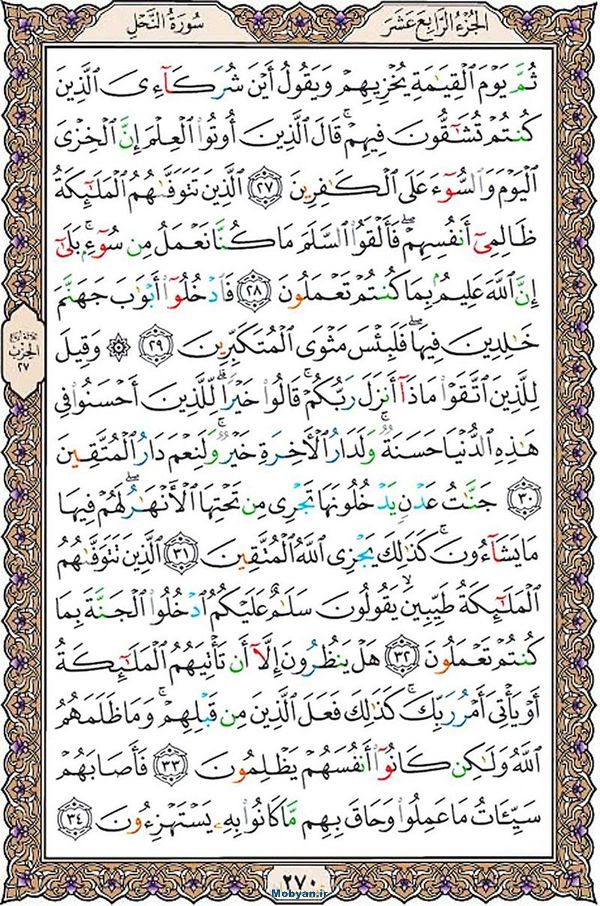 الجُزْءُ الرَّابِعَ عَشَرَ
سُورَةُ النَّحْلِ
ثُمَّ يَوْمَ ٱلْقِيَٰمَةِ يُخْزِيهِمْ وَيَقُولُ أَيْنَ شُرَكَآءِىَ ٱلَّذِينَ
كُنتُمْ تُشَٰٓقُّونَ فِيهِمْ ۚ قَالَ ٱلَّذِينَ أُوتُوا۟ ٱلْعِلْمَ إِنَّ ٱلْخِزْىَ
ٱلْيَوْمَ وَٱلسُّوٓءَ عَلَى ٱلْكَٰفِرِينَ ٢٧ ٱلَّذِينَ تَتَوَفَّىٰهُمُ ٱلْمَلَٰٓئِكَةُ
ظَالِمِىٓ أَنفُسِهِمْ ۖ فَأَلْقَوُا۟ ٱلسَّلَمَ مَا كُنَّا نَعْمَلُ مِن سُوٓءٍۭ ۚ بَلَىٰٓ
إِنَّ ٱللَّهَ عَلِيمٌۢ بِمَا كُنتُمْ تَعْمَلُونَ ٢٨ فَٱدْخُلُوٓا۟ أَبْوَٰبَ جَهَنَّمَ
خَٰلِدِينَ فِيهَا ۖ فَلَبِئْسَ مَثْوَى ٱلْمُتَكَبِّرِينَ ٢٩ ۞ وَقِيلَ
لِلَّذِينَ ٱتَّقَوْا۟ مَاذَآ أَنزَلَ رَبُّكُمْ ۚ قَالُوا۟ خَيْرًا ۗ لِّلَّذِينَ أَحْسَنُوا۟ فِى
هَٰذِهِ ٱلدُّنْيَا حَسَنَةٌ ۚ وَلَدَارُ ٱلْءَاخِرَةِ خَيْرٌ ۚ وَلَنِعْمَ دَارُ ٱلْمُتَّقِينَ
٣٠ جَنَّٰتُ عَدْنٍ يَدْخُلُونَهَا تَجْرِى مِن تَحْتِهَا ٱلْأَنْهَٰرُ ۖ لَهُمْ فِيهَا
مَا يَشَآءُونَ ۚ كَذَٰلِكَ يَجْزِى ٱللَّهُ ٱلْمُتَّقِينَ ٣١ ٱلَّذِينَ تَتَوَفَّىٰهُمُ
ٱلْمَلَٰٓئِكَةُ طَيِّبِينَ ۙ يَقُولُونَ سَلَٰمٌ عَلَيْكُمُ ٱدْخُلُوا۟ ٱلْجَنَّةَ بِمَا
كُنتُمْ تَعْمَلُونَ ٣٢ هَلْ يَنظُرُونَ إِلَّآ أَن تَأْتِيَهُمُ ٱلْمَلَٰٓئِكَةُ
أَوْ يَأْتِىَ أَمْرُ رَبِّكَ ۚ كَذَٰلِكَ فَعَلَ ٱلَّذِينَ مِن قَبْلِهِمْ ۚ وَمَا ظَلَمَهُمُ
ٱللَّهُ وَلَٰكِن كَانُوٓا۟ أَنفُسَهُمْ يَظْلِمُونَ ٣٣ فَأَصَابَهُمْ
سَيِّـَٔاتُ مَا عَمِلُوا۟ وَحَاقَ بِهِم مَّا كَانُوا۟ بِهِۦ يَسْتَهْزِءُونَ ٣٤
الحزب
٢٧
٢٧٠
Mobyan.ir